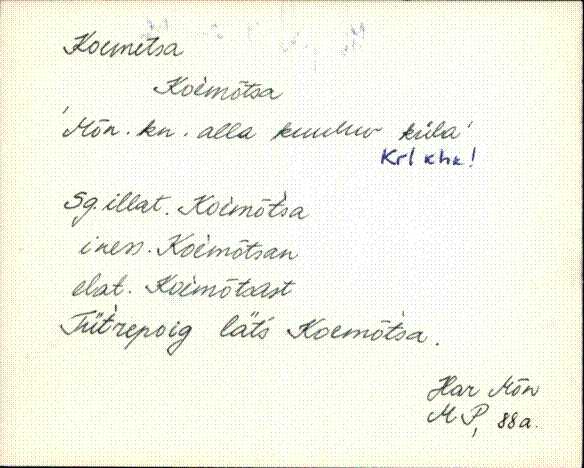 Koemetsa
Koemõtsa
'Mõn. kn. alla kuuluv küla'
Krl khk!
Sg. illat. Koemõtsa
iness. Koemõtsan
elat. Koemõtsast
Tüt́repoig läts Koemõtsa.
Har Mõn
M P, 88a.